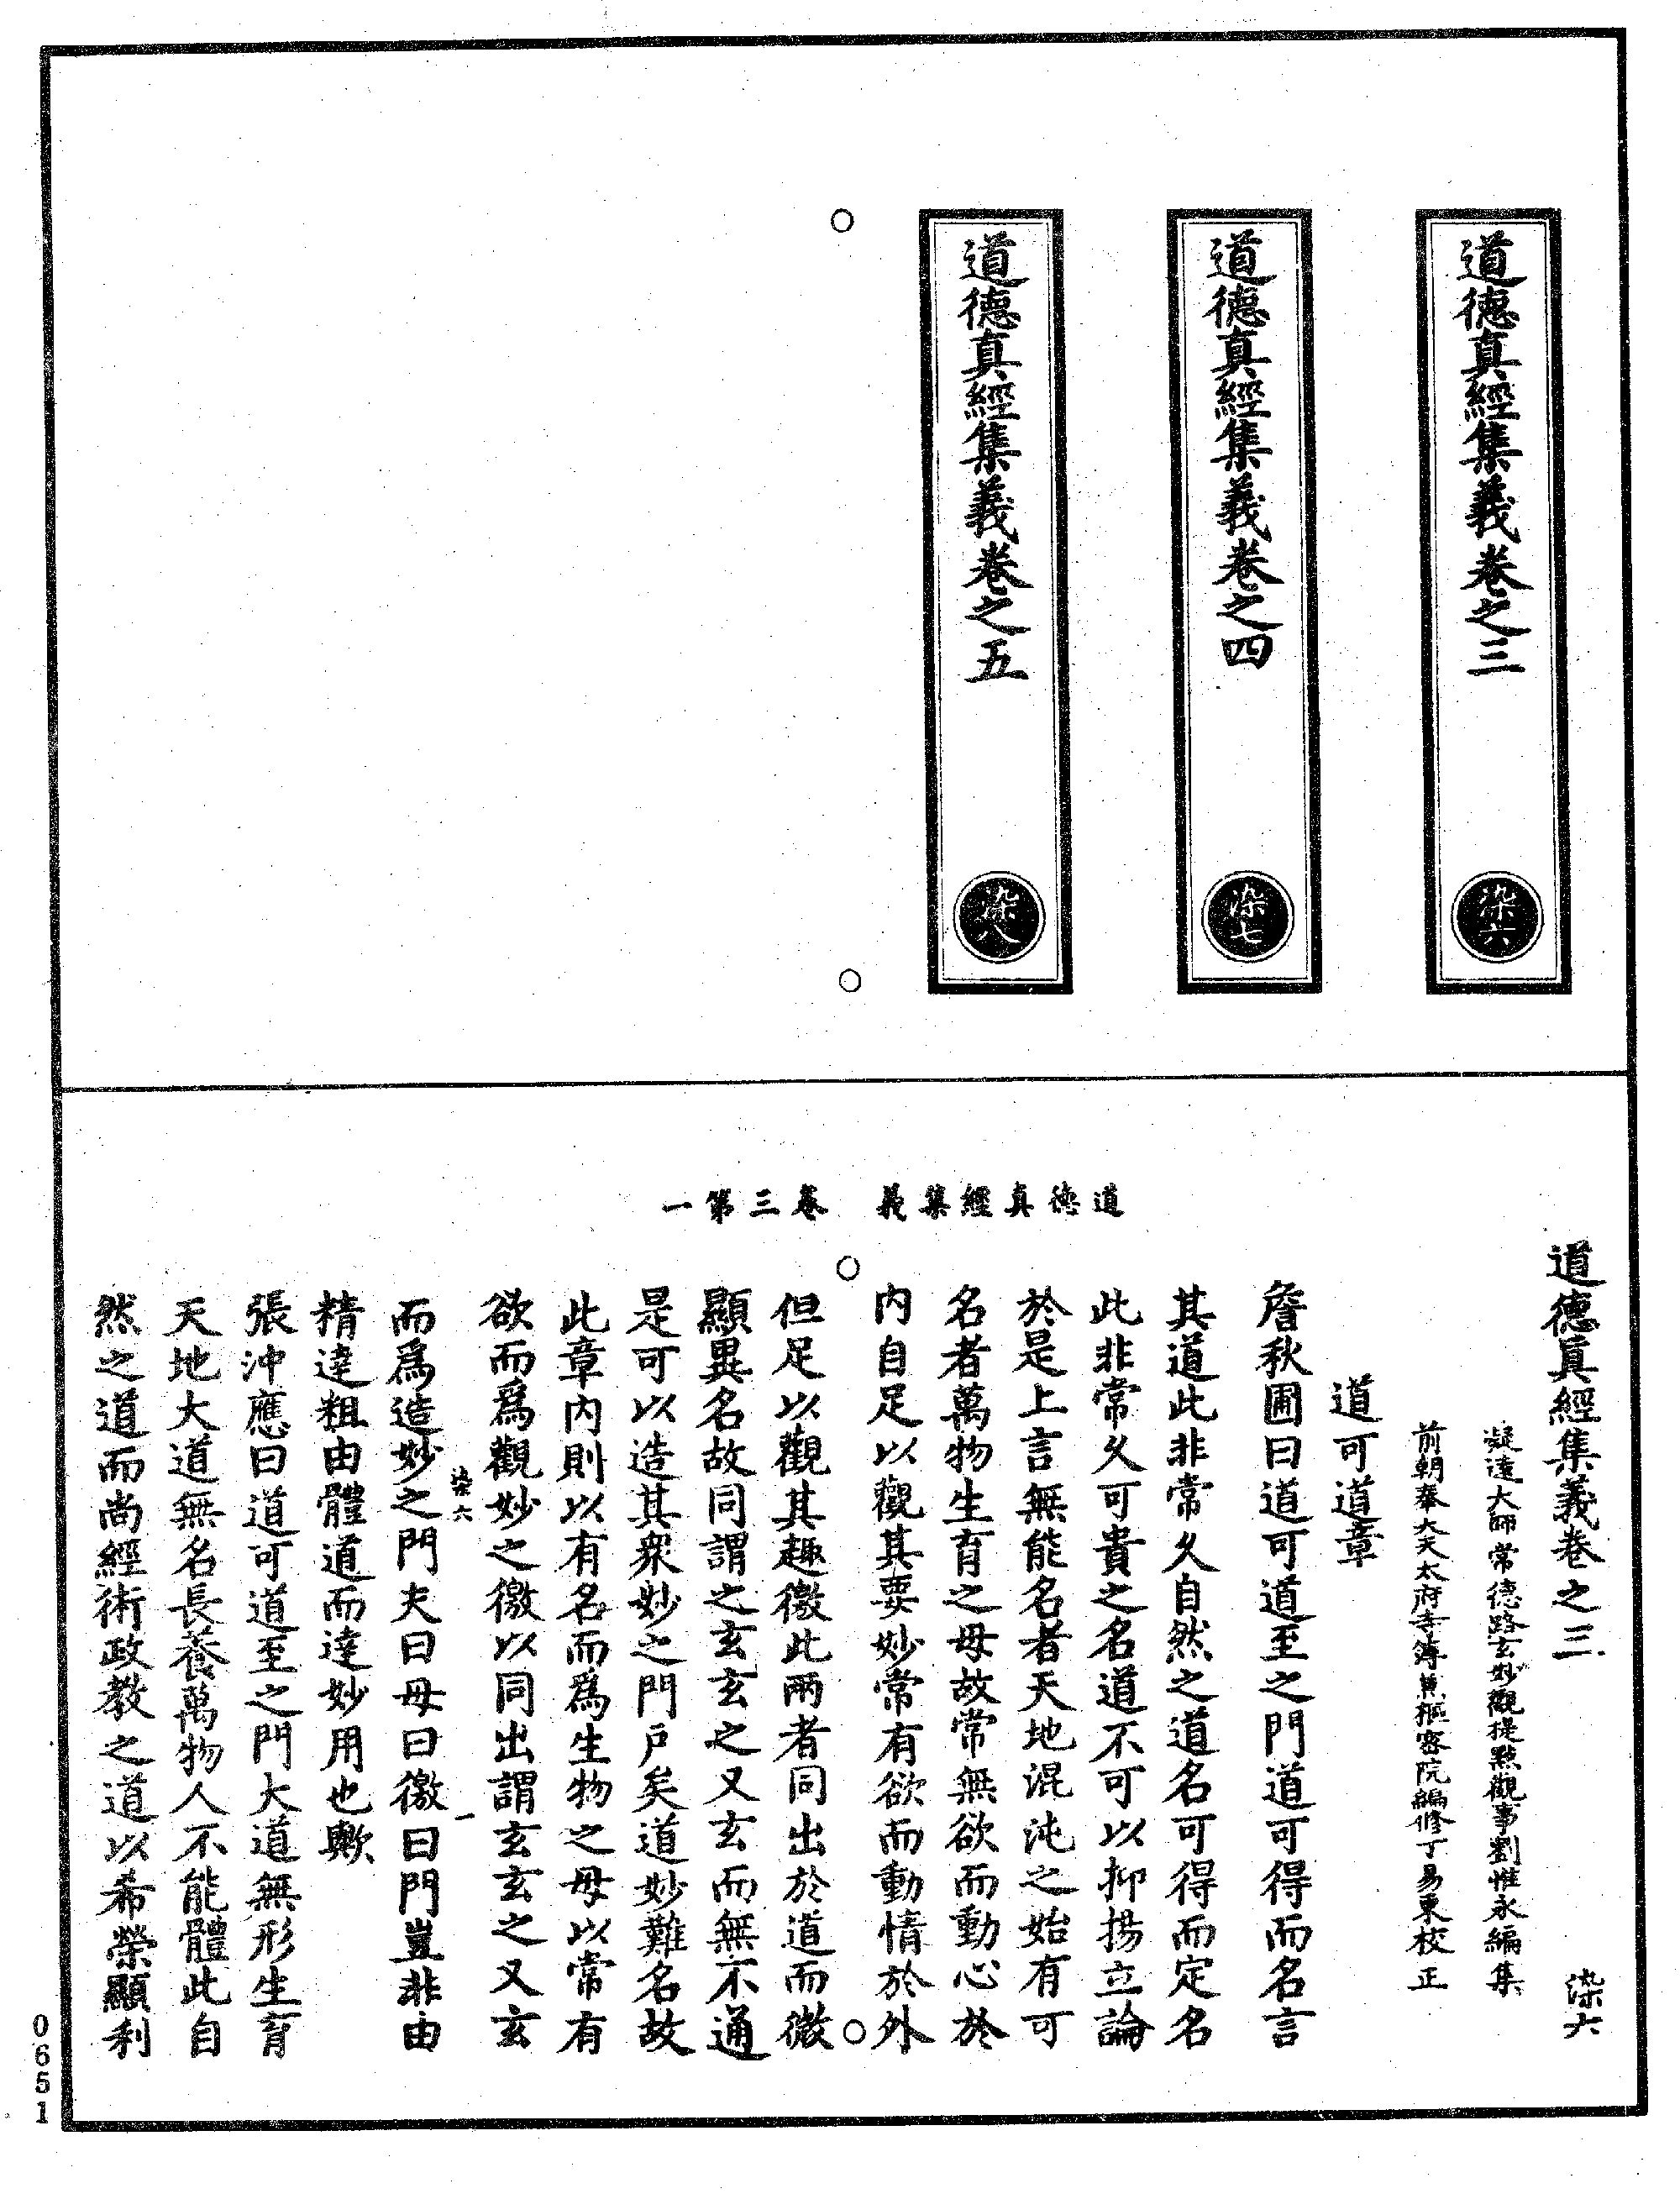 道德真經集義卷之三
染六
道德真經集義卷之四
染七
道德真經集義卷之五
染八
道德真經集義 卷三第一
道德眞經集義卷之三 染六
凝遠大師常德路玄妙觀提點觀事劉惟永編集
前朝奉大夫太府寺簿兼樞密院編修丁易東校正
道可道章
詹秋圃曰道可道至之門道可得而名言
其道此非常久自然之道名可得而定名
此非常久可貴之名道不可以抑揚立論
於是上言無能名者天地混沌之始有可
名者萬物生育之母故常無欲而動心於
內自足以觀其要妙常有欲而動情於外
但足以觀其趣徼此兩者同出於道而微
顯異名故同謂之玄玄之又玄而無不通
是可以造其衆妙之門戶矣道妙難名故
此章內則以有名而爲生物之母以常有
欲而爲觀妙之徼以同出謂玄玄之又玄
染六 一
而爲造妙之門夫曰母曰徼曰門豈非由
精達粗由體道而達妙用也歟
張沖應曰道可道至之門大道無形生育
天地大道無名長養萬物人不能體此自
然之道而尚經術政教之道以希榮顯利
0651